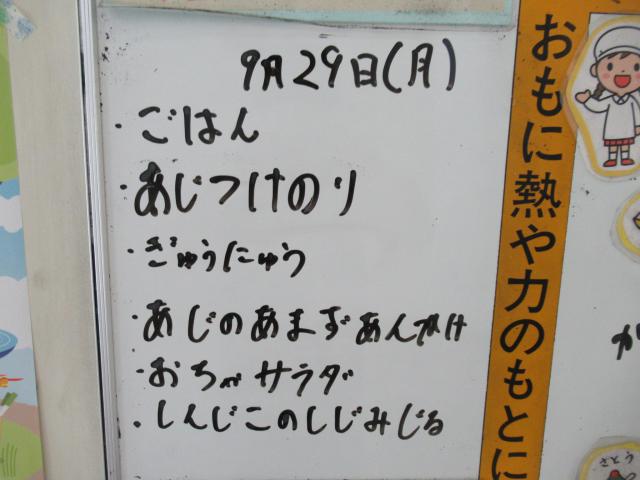 9月29日(月)
・ごはん
・あじつけのり
・ぎゅうにゅう
・あじのあまずあんかけ
・おちゃサラダ
・しんじこのしじみじる
おもに熱や力のもとに
か
さとう